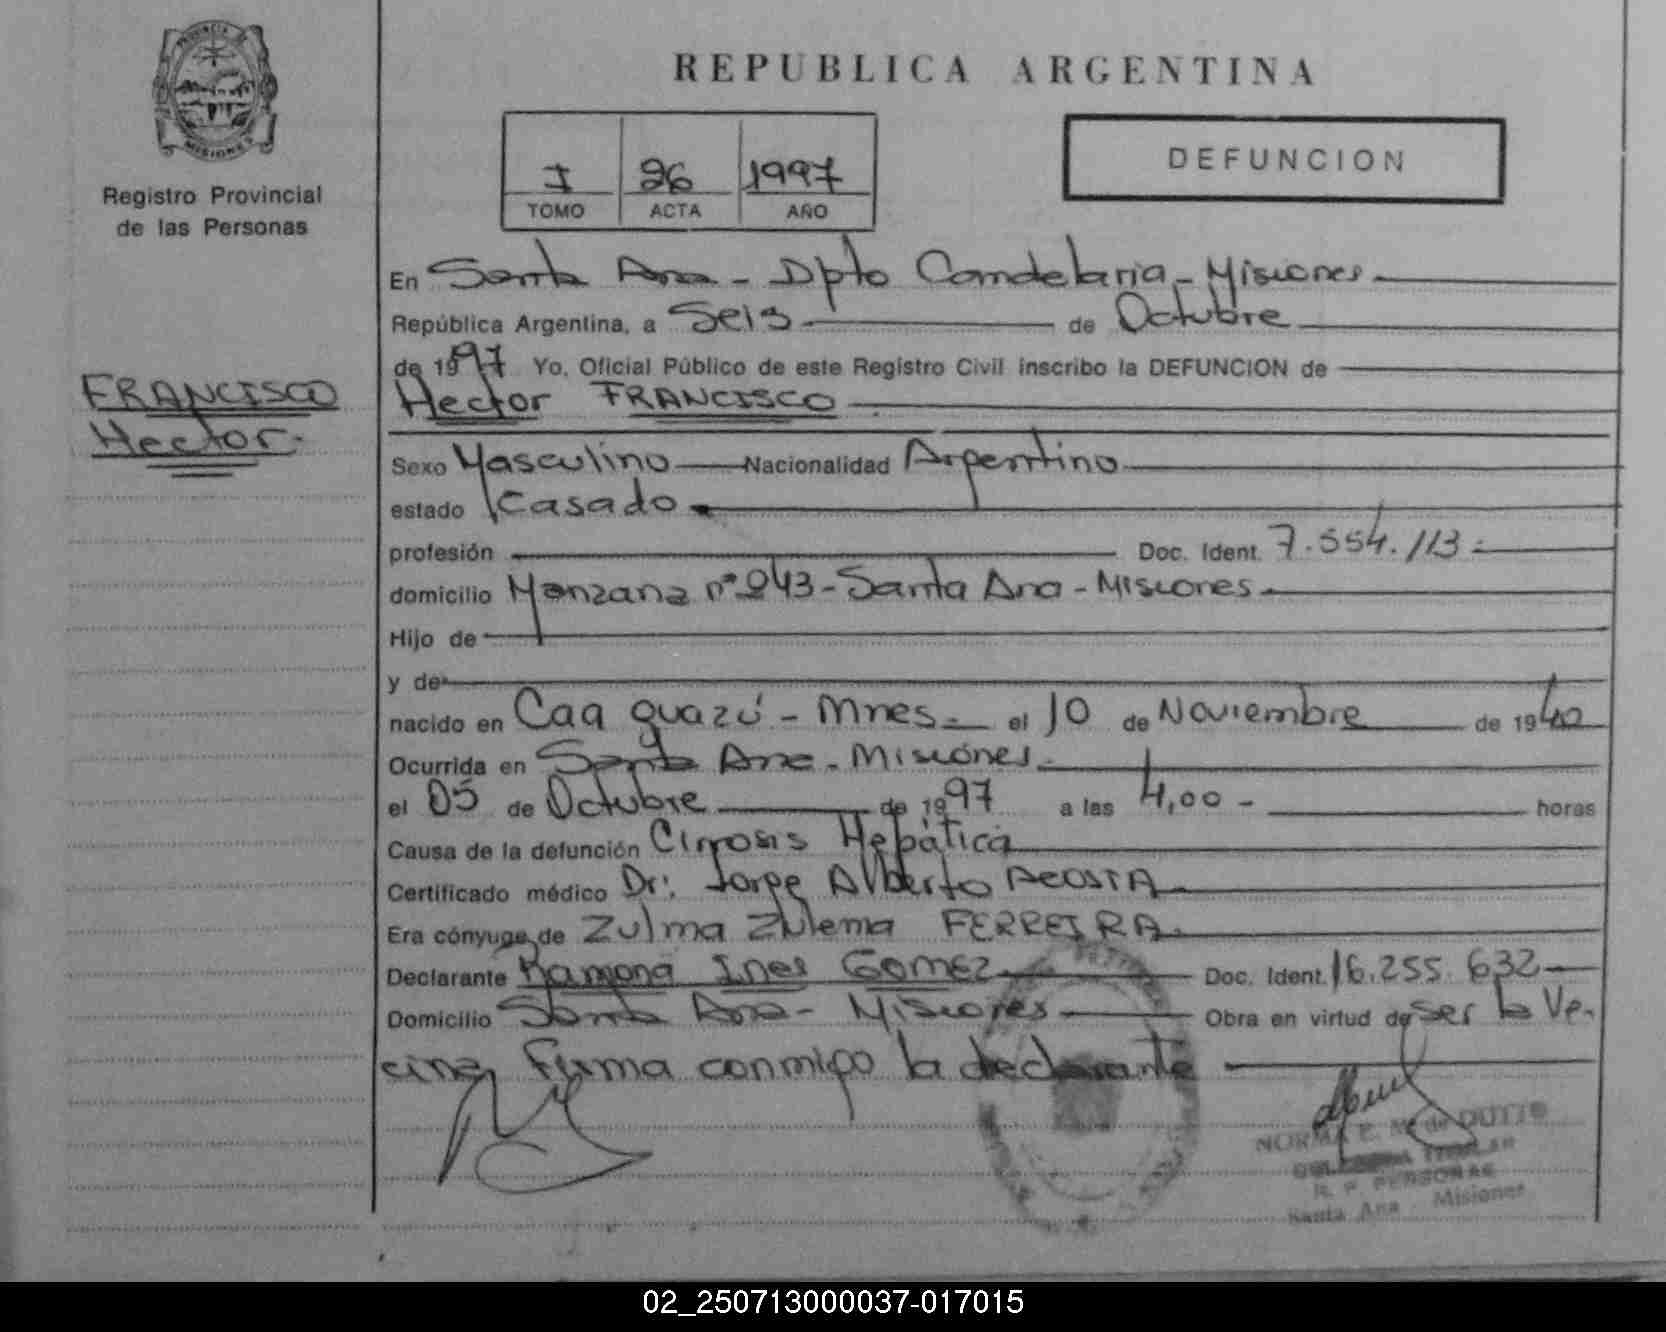 PROVINCIA DE
MISIONES
Registro Provincial
de las Personas
FRANCISCO
Hector.
REPUBLICA ARGENTINA
I 26 1997
TOMO ACTA AÑO
DEFUNCION
En Santa Ana - Dpto Candelaria - Misiones
República Argentina, a Seis de Octubre
de 1997 Yo, Oficial Público de este Registro Civil inscribo la DEFUNCION de
Hector FRANCISCO
Sexo Masculino Nacionalidad Argentino
estado Casado
profesión Doc. Ident. 7.554.113
domicilio Manzana nº 243 - Santa Ana - Misiones
Hijo de
y de
nacido en Caa guazú - Mnes. el 10 de Noviembre de 1940
Ocurrida en Santa Ana - Misiones
el 05 de Octubre de 1997 a las 4,00 - horas
Causa de la defunción Cirrosis Hepática
Certificado médico Dr: Jorge Alberto ACOSTA
Era cónyuge de Zulma Zulema FERREIRA
Declarante Ramona Ines Gomez Doc. Ident. 16.255.632
Domicilio Santa Ana - Misiones Obra en virtud de ser la Ve-
cina, Firma conmigo la declarante
NORMA E. M. de DUTTO
TITULAR
R. P. PERSONAS
Santa Ana - Misiones
02_250713000037-017015